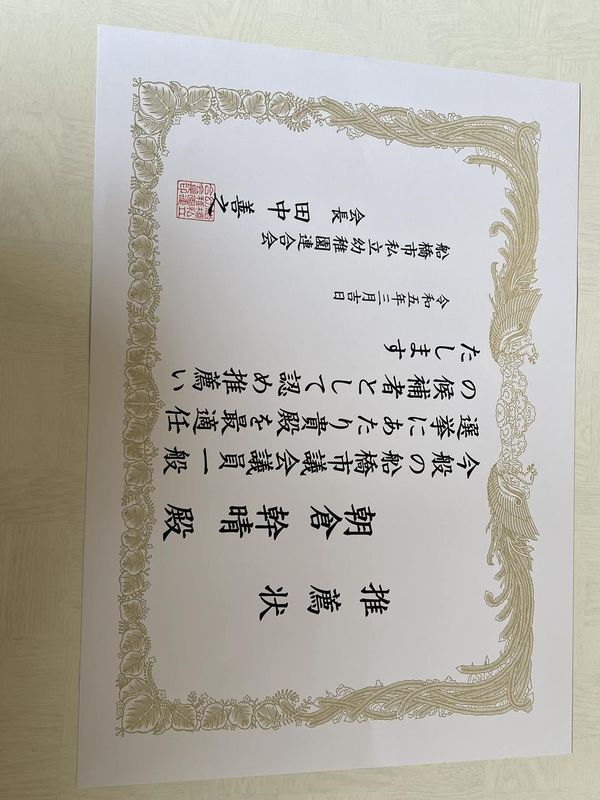 推薦状
朝倉幹晴殿
今般の船橋市議会議員一般
選挙にあたり貴殿を最適任
の候補者として認め推薦い
たします
令和五年三月吉日
船橋市私立幼稚園連合会
会長 田中善之